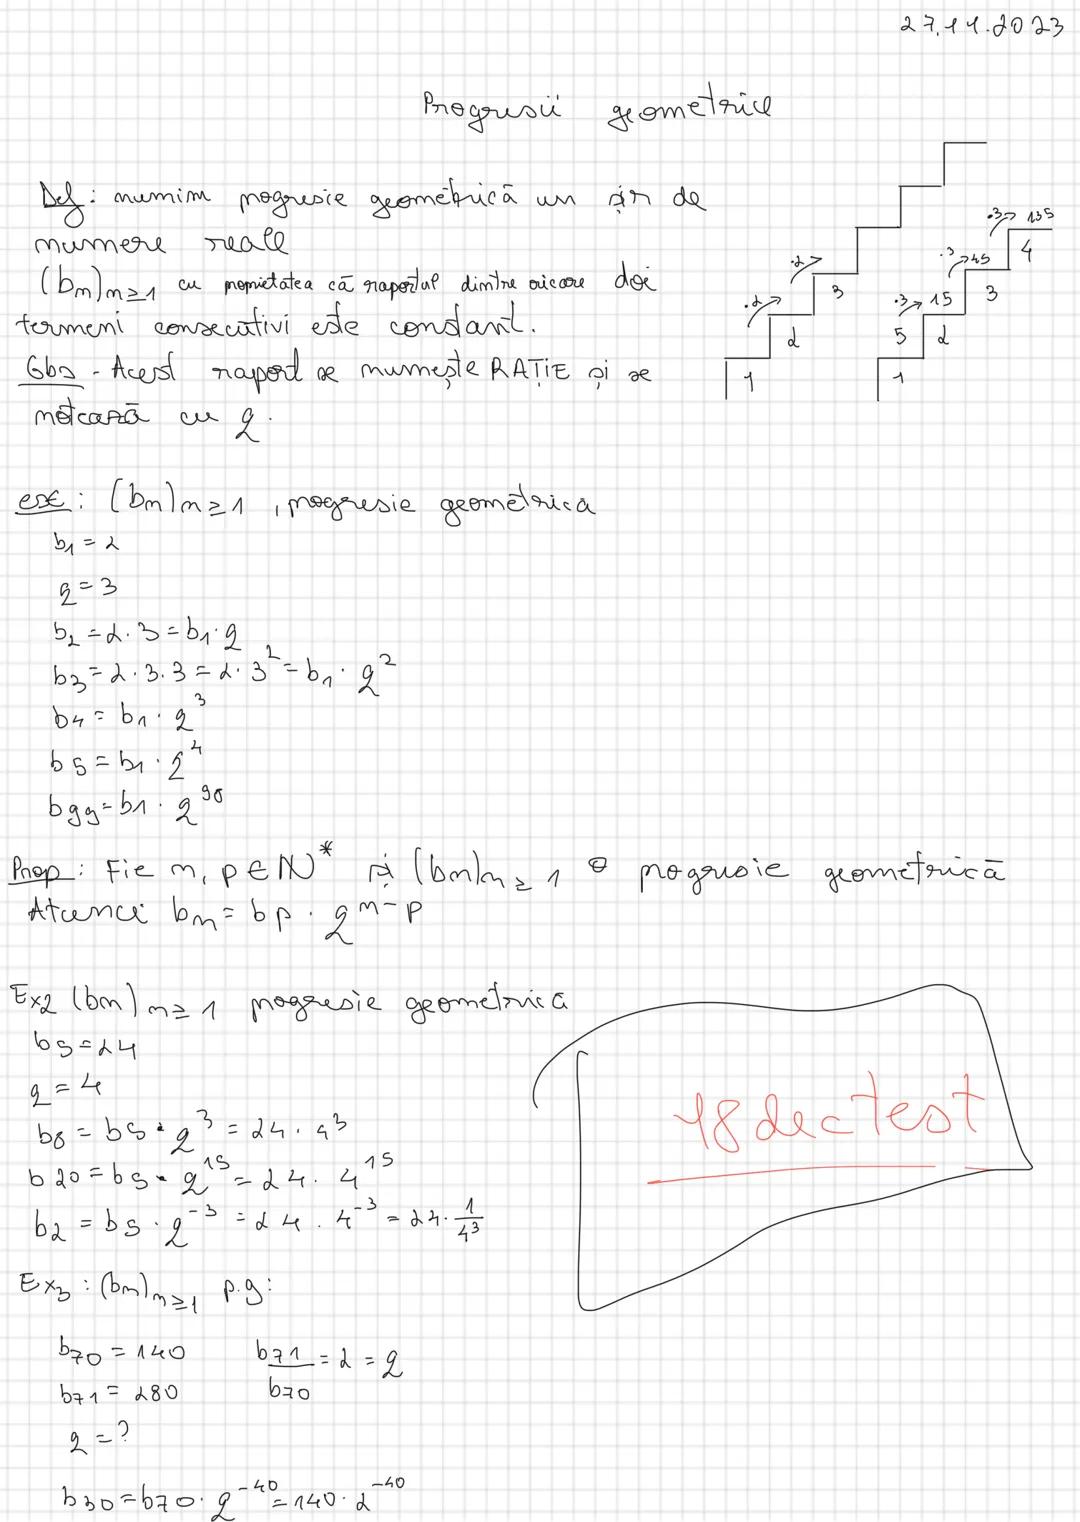 27.11.2023
Progresii geometrice
Def: numim progresie geometrică un șir de
numere reale
(bn)n≥1 cu proprietatea că raportul dintre oricare doi
termeni consecutivi este constant.
Obs - Acest raport se numește RAȚIE și se
notează cu q.
1 ·2 2 ·2 3
1 5 ·3 15 2 ·3 45 3 ·3 135 4
ex: (bn)n≥1, progresie geometrica
b1 = 2
q = 3
b2 = 2·3 = b1·q
b3 = 2·3·3 = 2·3² = b1·q²
b4 = b1·q³
b5 = b1·q⁴
b99 = b1·q⁹⁸
Prop: Fie n, p ∈ N* și (bn)n≥1 o progresie geometrică
Atunci bn = bp·q^n-p
Ex2 (bn)n≥1 progresie geometrica
b5 = 24
q = 4
b8 = b5·q³ = 24·4³
b20 = b5·q¹⁵ = 24·4¹⁵
b2 = b5·q⁻³ = 24·4⁻³ = 24·1/4³
18 dec test
Ex3: (bn)n≥1 p.g:
b70 = 140 b71/b70 = 2 = q
b71 = 280
q = ?
b30 = b70·q⁻⁴⁰ = 140·2⁻⁴⁰